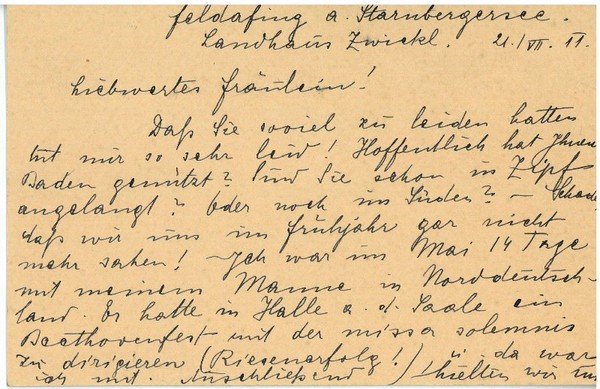 Feldafing a. Starnbergersee.
Landhaus Zwickl. 21./VII. 11.
Liebwertes Fräulein!
Daß Sie soviel zu leiden hatten
tut mir so sehr leid! Hoffentlich hat Ihnen
Baden genützt? Sind Sie schon in Zipf
angelangt? Oder noch im Süden? – Schade,
daß wir uns im Frühjahr gar nicht
mehr sahen! – Ich war im Mai 14 Tage
mit meinem Manne in Norddeutsch-
land. Er hatte in Halle a. d. Saale ein
Beethovenfest mit der missa solemnis
zu dirigieren (Riesenerfolg!) u. da war
ich mit. Anschließend hielten wir uns